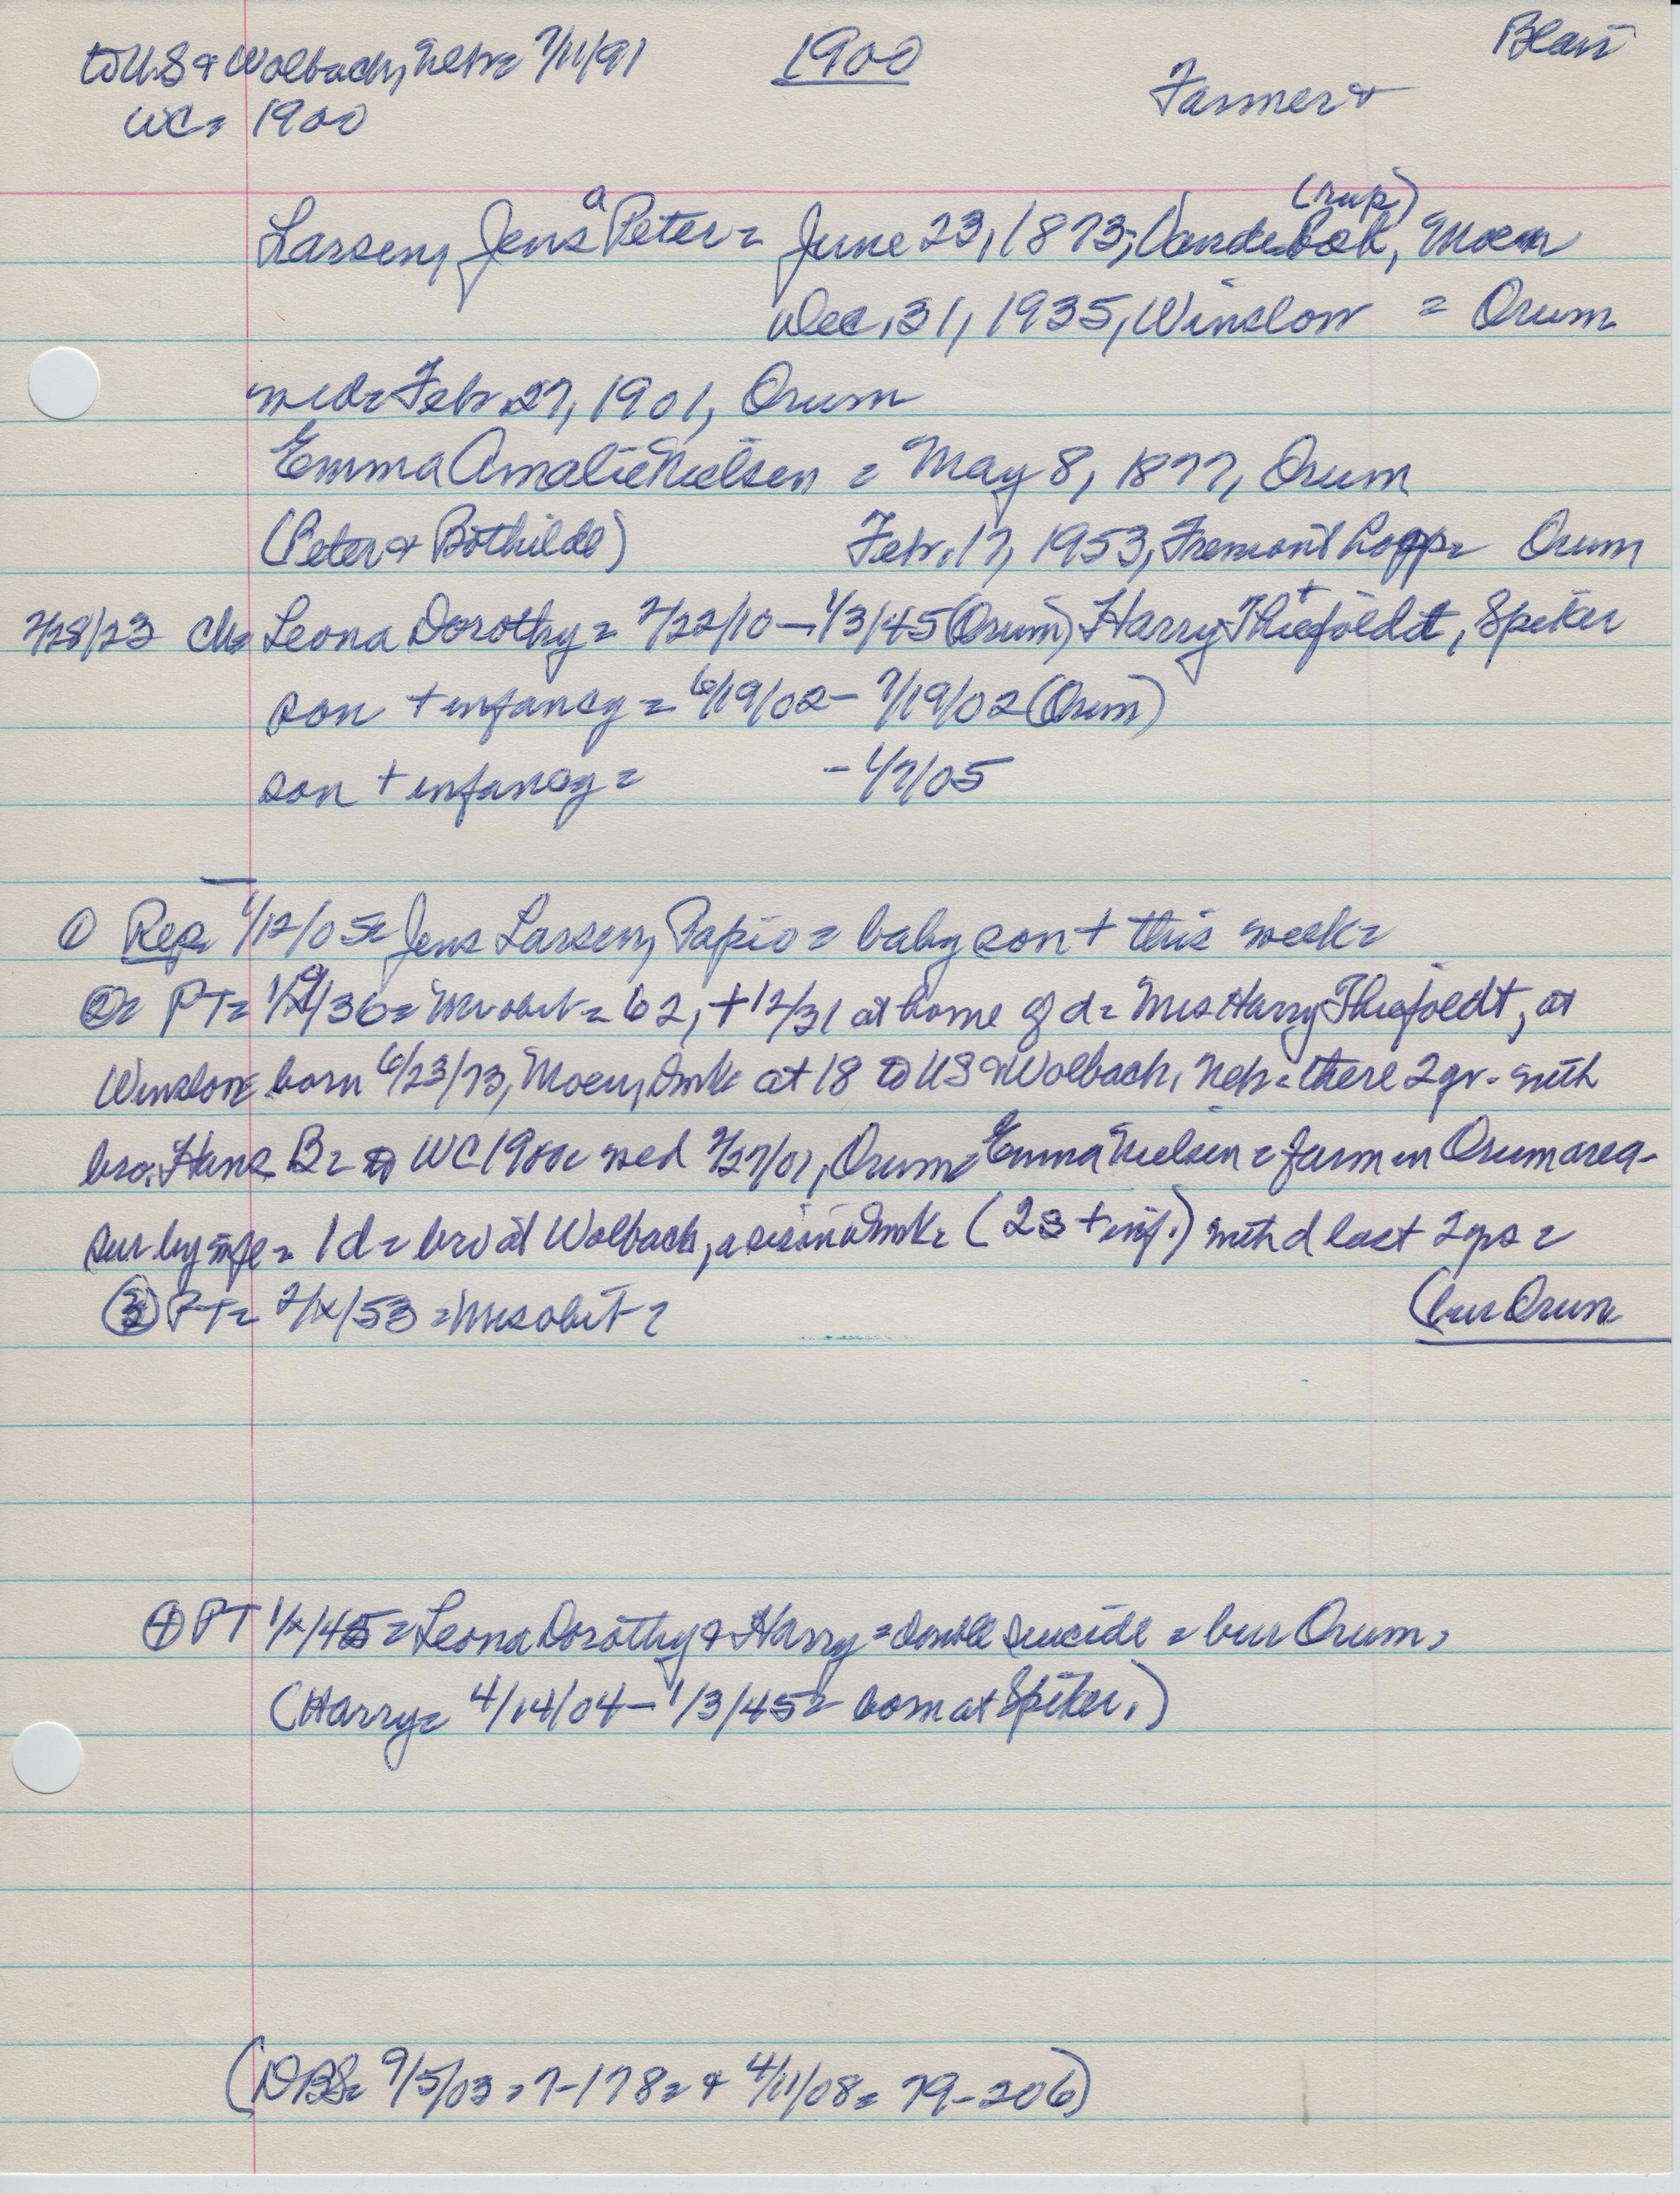 to U.S & Wolbach, Nebr= 7/11/91
1900
Blair
WC= 1900
Farmer +
(rup)
a
Larsen, Jens Peter= June 23, 1873, Moen
Dec. 31, 1935, Winslow = Orum
md= Febr 27, 1901, Orum
Emma Amalie Nielsen = May 8, 1877, Orum
(Peter & Bothilde)
Febr. 17, 1953, Fremont = Orum
7/28/23 Ch= Leona Dorothy = 2/22/10 – 1/3/45 (Orum) Harry Thiefoldt, Spiker
son + infancy = 6/19/02 – 7/19/02 (Orum)
son + infancy = – 1/7/05
① Rep 1/12/05= Jens Larsen, Papio = baby son + this week=
PT= 1/9/36= Mr obit = 62, + 12/31 at home of d= Mrs Harry Thiefoldt, at
Winslow= born 6/23/73, Moen, Dmk= at 18 to US & Wolbach, Neb= there 2 yr= with
bro. Hans B= to WC 1900= wed 2/27/01, Orum= Emma Nielsen = farm in Orum area-
sur by wife = 1 d = bro at Wolbach, a sis in Dmk= (2 s + inf.) with d last 2 yrs =
③ PT= 2/x/53 = Mrs obit =
(bur Orum
④ PT 1/x/45 = Leona Dorothy & Harry = double suicide = bur Orum,
(Harry= 4/14/04 – 1/3/45= born at Spiker.)
(DBS= 9/5/03 = 7-178= & 4/11/08= 79-206)